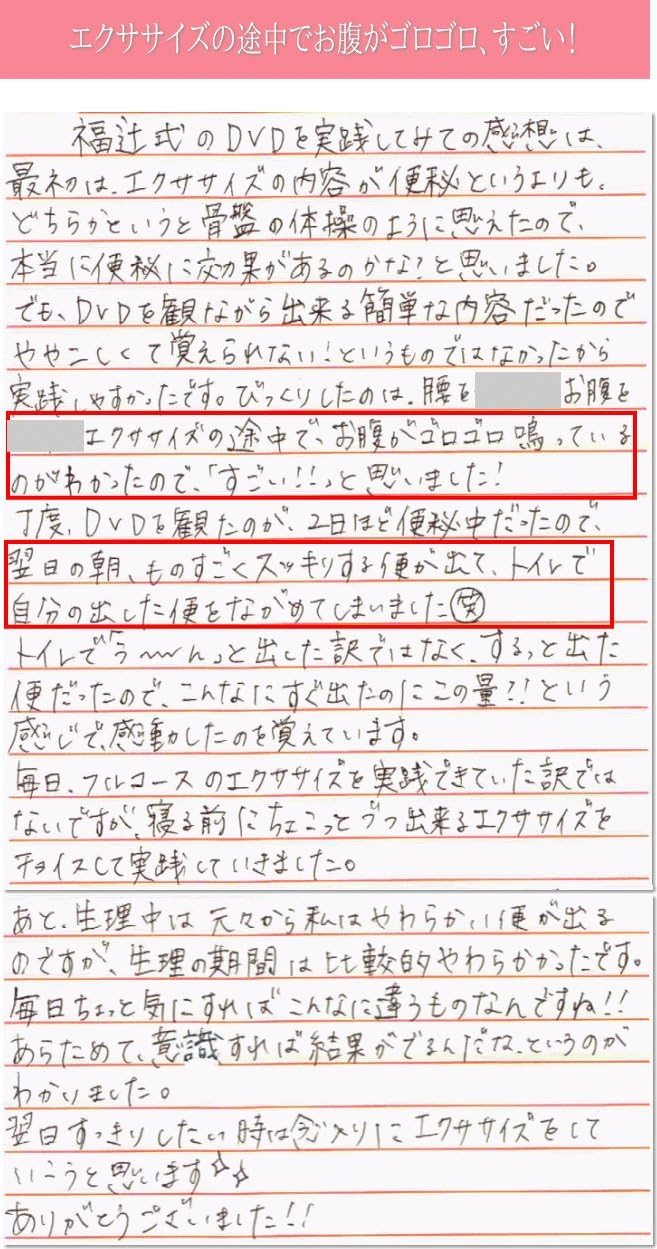 エクササイズの途中でお腹がゴロゴロ、すごい！
福辻式のDVDを実践してみての感想は、
最初は、エクササイズの内容が便秘というよりも、
どちらかというと骨盤の体操のように思えたので、
本当に便秘に効果があるのかな？と思いました。
でも、DVDを観ながら出来る簡単な内容だったので
ややこしくて覚えられない！というものではなかったから
実践しやすかったです。びっくりしたのは、腰を お腹を
エクササイズの途中で、お腹がゴロゴロ鳴っている
のがわかったので、「すごい!!」と思いました！
丁度、DVDを観たのが、2日ほど便秘中だったので、
翌日の朝、ものすごくスッキリする便が出て、トイレで
自分の出した便をながめてしまいました㊗笑
トイレで「う〜〜ん」と出した訳ではなく、するっと出た
便だったので、こんなにすぐ出たのにこの量?!という
感じで、感動したのを覚えています。
毎日、フルコースのエクササイズを実践できていた訳では
ないですが、寝る前にちょこっとづつ出来るエクササイズを
チョイスして実践していきました。
あと、生理中は元々から私はやわらかい便が出る
のですが、生理の期間は比較的やわらかかったです。
毎日ちょっと気にすればこんなに違うものなんですね!!
あらためて、意識すれば結果がでるんだな、というのが
わかりました。
翌日すっきりしたい時は念入りにエクササイズをして
いこうと思います☆☆
ありがとうございました!!